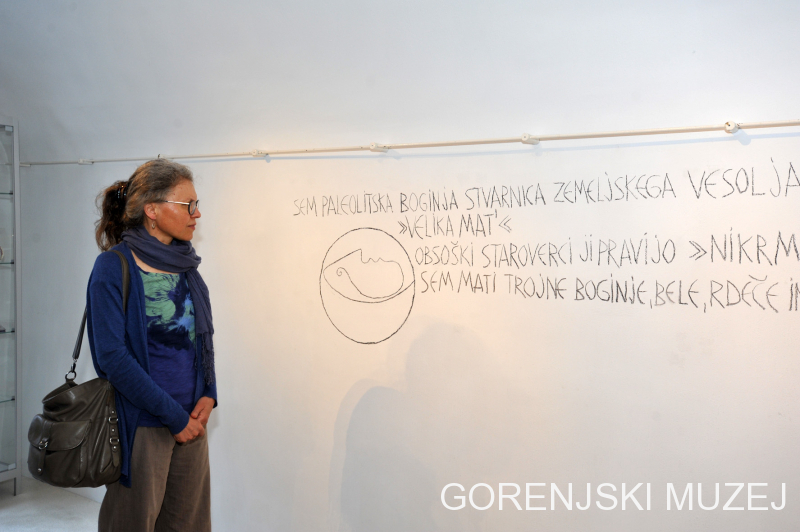 SEM PALEOLITSKA BOGINJA STVARNICA ZEMELJSKEGA VESOLJA
»VELIKA MAT'«
OBSOŠKI STAROVERCI JI PRAVIJO »NIKRM
SEM MATI TROJNE BOGINJE, BELE, RDEČE IN
GORENJSKI MUZEJ